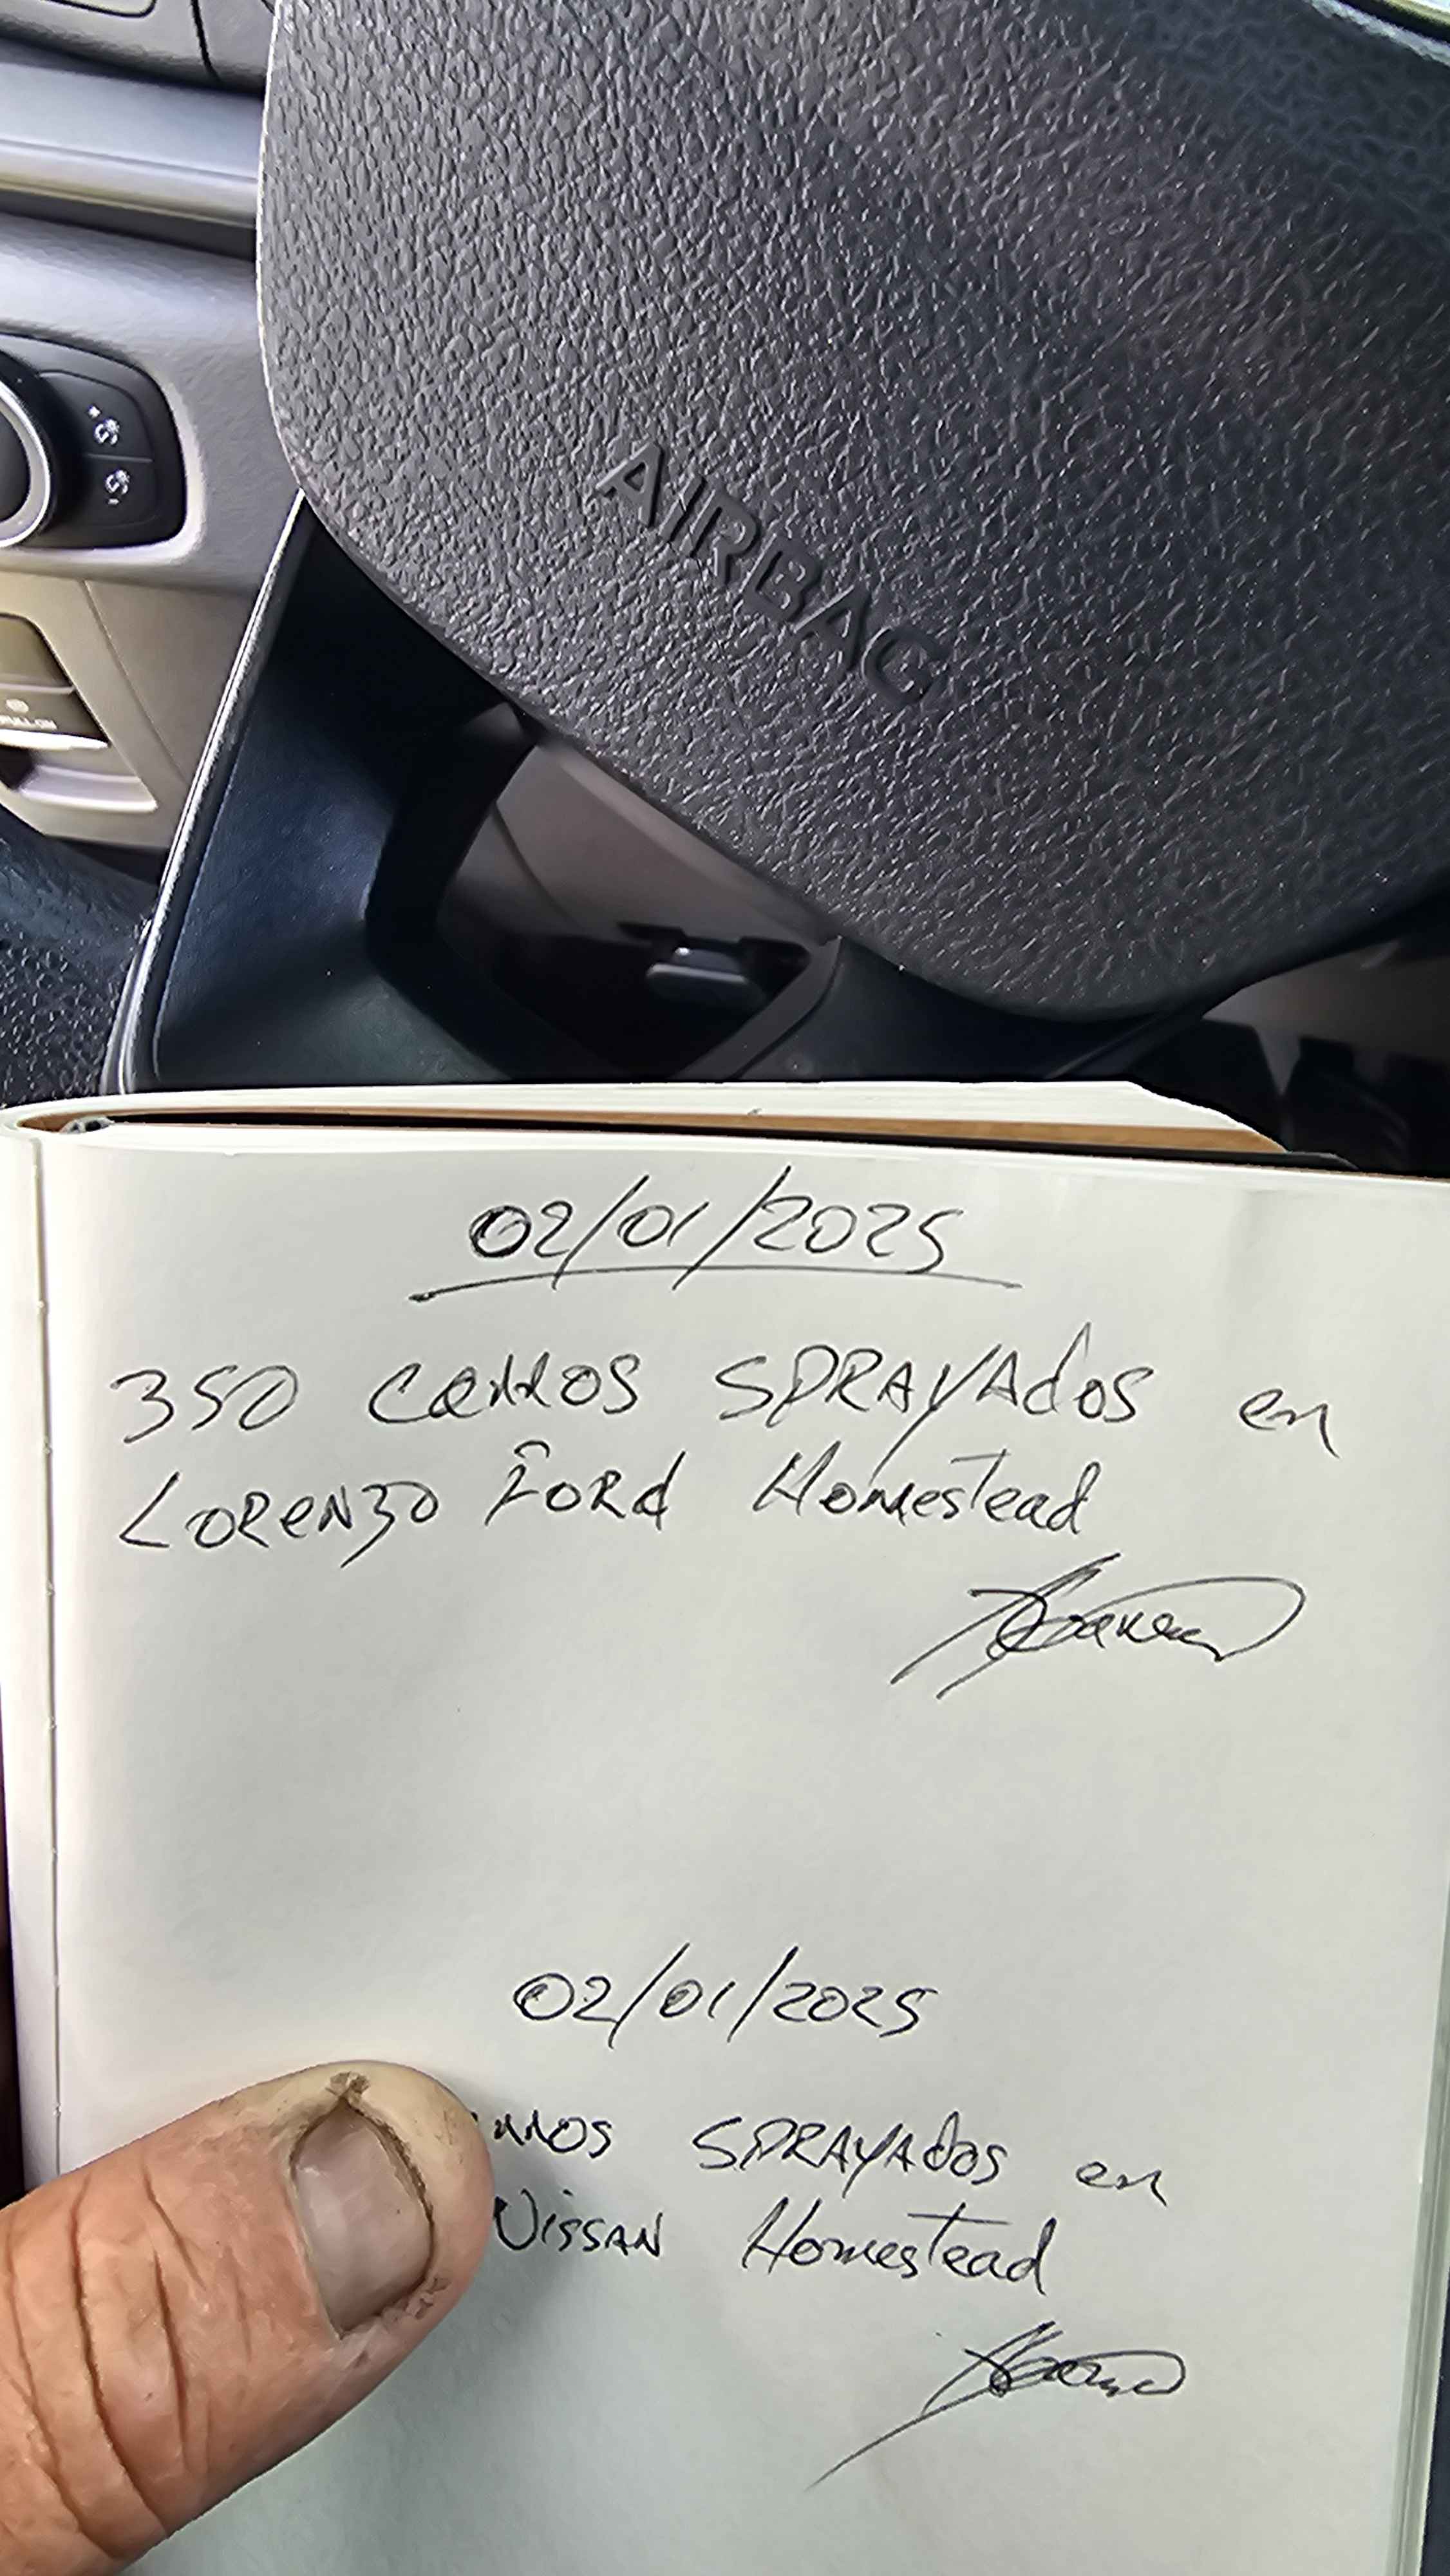 AIRBAG
02/01/2025
350 carros SPRAYAdos en
LORENZO FORd Homestead
02/01/2025
SPRAYAdos en
Nissan Homestead